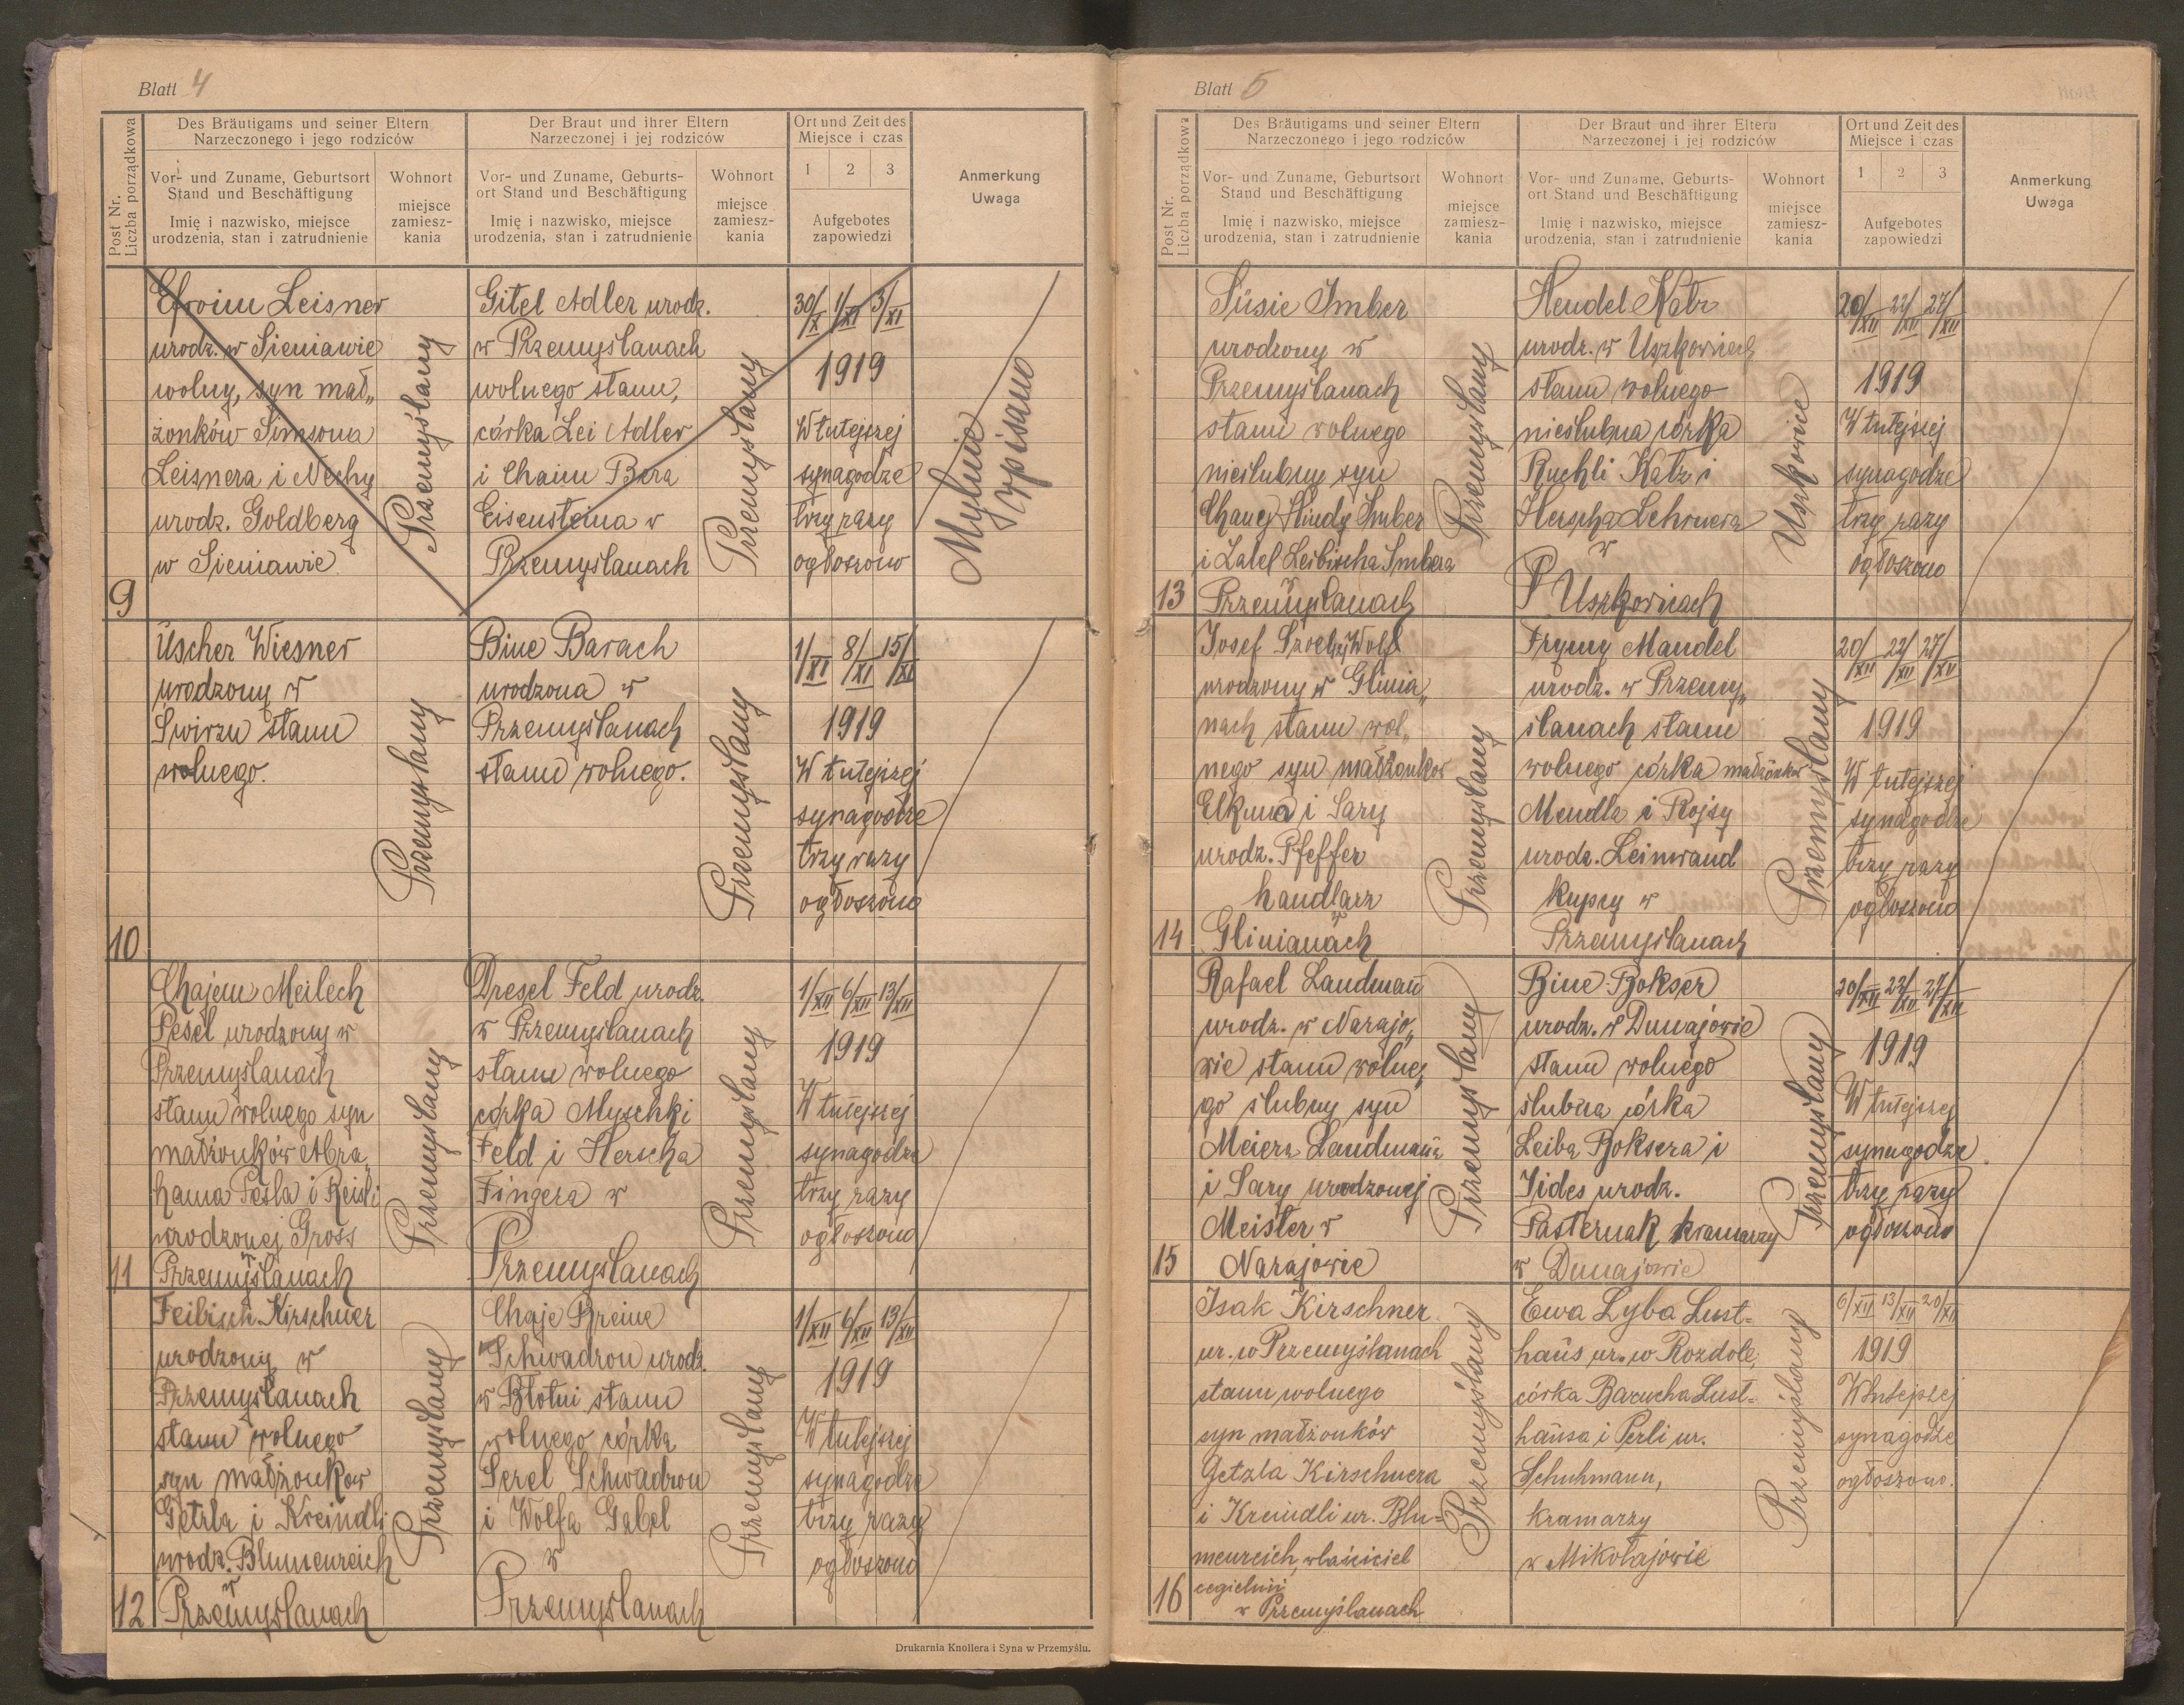 Blatt 4
Post Nr.
Liczba porządkowa
Des Bräutigams und seiner Eltern
Narzeczonego i jego rodziców
Der Braut und ihrer Eltern
Narzeczonej i jej rodziców
Ort und Zeit des
Miejsce i czas
Vor- und Zuname, Geburtsort
Stand und Beschäftigung
Imię i nazwisko, miejsce
urodzenia, stan i zatrudnienie
Wohnort
miejsce
zamiesz-
kania
Vor- und Zuname, Geburts-
ort Stand und Beschäftigung
Imię i nazwisko, miejsce
urodzenia, stan i zatrudnienie
Wohnort
miejsce
zamiesz-
kania
1 2 3
Aufgebotes
zapowiedzi
Anmerkung
Uwaga
9
Efroim Leisner
urodz. w Sieniawie
wolny, syn mał„
żonków Simsona
Leisnera i Nechy
urodz. Goldberg
w Sieniawie
Przemyślany
Gitel Adler urodz.
w Przemyslanach
wolnego stanu,
córka Lei Adler
i Chaim Bera
Eisensteina w
Przemyslanach
Przemyslany
30/X 1/XI 3/XI
1919
W tutejszej
synagodze
trzy razy
ogłoszono
Mylnie
wpisano
10
Uscher Wiesner
urodzony w
Świrzu stanu
wolnego.
Przemyslany
Bine Barach
urodzona w
Przemyslanach
stanu wolnego.
Przemyslany
1/XI 8/XI 15/XI
1919
W tutejszej
synagodze
trzy razy
ogłoszono
11
Chajem Meilech
Pesel urodzony w
Przemyslanach
stanu wolnego syn
małżonków Abra„
hama Pesla i Reisli
urodzonej Gross
w
Przemyslanach
Przemyslany
Dresel Feld urodz.
w Przemyslanach
stanu wolnego
córka Myschki
Feld i Herscha
Fingera w
Przemyslanach
Przemyslany
1/XII 6/XII 13/XII
1919
W tutejszej
synagodze
trzy razy
ogłoszono
12
Feibisch Kirschner
urodzony w
Przemyslanach
stanu wolnego
syn małżonkow
Getzla i Kreindli
urodz. Blumenreich
w
Przemyslanach
Przemyslany
Chaje Breine
Schwadron urodz.
w Błotni stanu
wolnego córka
Serel Schwadron
i Wolfa Gabel
w
Przemyslanach
Przemyslany
1/XII 6/XII 13/XII
1919
W tutejszej
synagodze
trzy razy
ogłoszono
Drukarnia Knollera i Syna w Przemyślu.
Blatt 5
Post Nr.
Liczba porządkowa
Des Bräutigams und seiner Eltern
Narzeczonego i jego rodziców
Der Braut und ihrer Eltern
Narzeczonej i jej rodziców
Ort und Zeit des
Miejsce i czas
Vor- und Zuname, Geburtsort
Stand und Beschäftigung
Imię i nazwisko, miejsce
urodzenia, stan i zatrudnienie
Wohnort
miejsce
zamiesz-
kania
Vor- und Zuname, Geburts-
ort Stand und Beschäftigung
Imię i nazwisko, miejsce
urodzenia, stan i zatrudnienie
Wohnort
miejsce
zamiesz-
kania
1 2 3
Aufgebotes
zapowiedzi
Anmerkung
Uwaga
13
Süsie Imber
urodzony w
Przemyslanach
stanu wolnego
nieślubny syn
Hindy Imber
i Leibischa Imbera
Przemyslanach
Przemyslany
Hendel Katz
urodz. w Uszkowicach
stanu wolnego
nieslubna córka
Ruchli Katz i
Herscha Lehrnera
w
Uszkowicach
Uszkowice
20/XII 22/XII 27/XII
1919
W tutejszej
synagodze
trzy razy
ogłoszono
14
Josef Wolf
urodzony w Glinia„
nach stanu wol„
nego syn małżonkow
Elkuna i Sary
urodz. Pfeffer
handlarz
w
Glinianach
Przemyslany
Frymy Mandel
urodz. w Przemy„
slanach stanu
wolnego córka małżonkow
Mendla i Rojsy
urodz. Leinwand
kupcy w
Przemyslanach
Przemyslany
20/XII 22/XII 27/XII
1919
W tutejszej
synagodze
trzy razy
ogłoszono
15
Rafael Landmann
urodz. w Narajo„
wie stanu wolne„
go slubny syn
Meiera Landmanna
i Sary urodzonej
Meister w
Narajowie
Przemyslany
Bine Bokser
urodz. w Dunajowie
stanu wolnego
slubna córka
Leiba Boksera i
Jides urodz.
Pasternak kramarzy
w Dunajowie
Przemyslany
20/XII 22/XII 27/XII
1919
W tutejszej
synagodze
trzy razy
ogłoszono
16
Isak Kirschner
ur. w Przemyślanach
stanu wolnego
syn małżonków
Getzla Kirschnera
i Kreindli ur. Blu=
menreich, właściciel
cegielnii
w Przemyślanach
Przemyślany
Ewa Lyba Lust=
haus ur. w Rozdole,
córka Barucha Lust=
hausa i Perli ur.
Schuhmann,
kramarzy
w Mikołajowie
Przemyślany
6/XII 13/XII 20/XII
1919
W tutejszej
synagodze
ogłoszono.